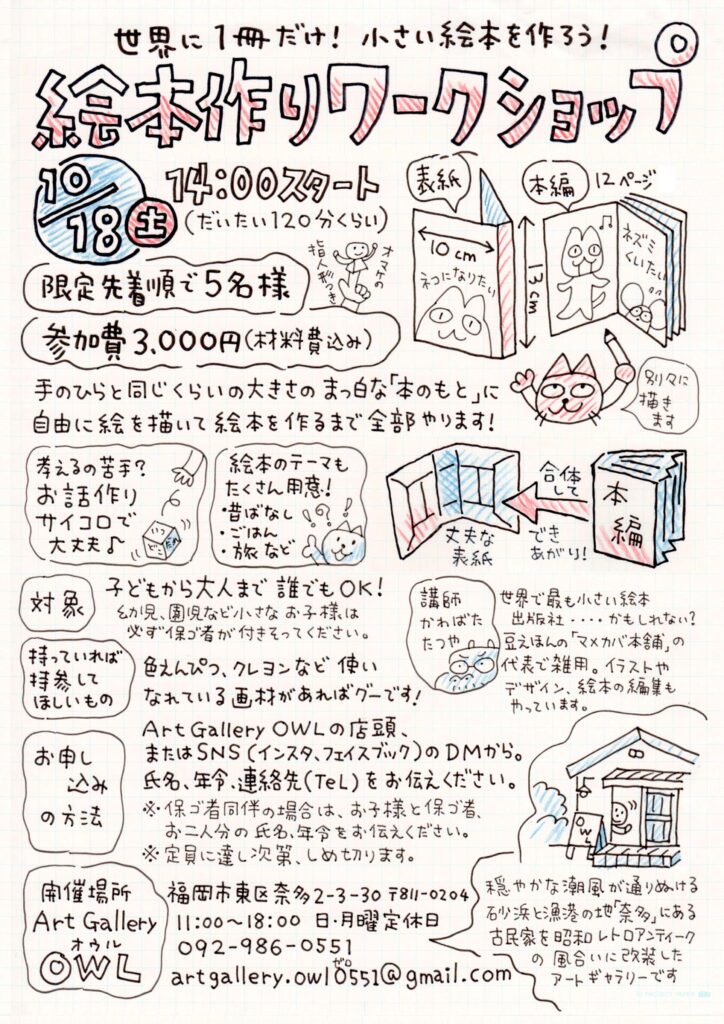 世界に1冊だけ! 小さい絵本を作ろう!
絵本作りワークショップ
10/18土
14:00スタート
(だいたい120分くらい)
限定先着順で5名様
オマケの
指人形つき
参加費3,000円(材料費込み)
表紙
10cm
13cm
ネコになりたい
本編
12ページ
ネズミ
くいたい
別々に
描き
ます
手のひらと同じくらいの大きさの まっ白な「本のもと」に
自由に絵を描いて絵本を作るまで全部やります!
考えるの苦手?
お話作り
サイコロで
大丈夫♪
絵本のテーマも
たくさん用意!
・昔ばなし
・ごはん
・旅 など
丈夫な
表紙
合体
して
でき
あがり!
本編
対象
子どもから大人まで 誰でもOK!
幼児、園児など小さな お子様は
必ず保ゴ者が付きそってください。
持っていれば
持参して
ほしいもの
色えんぴつ、クレヨンなど 使い
なれている画材があればグーです!
講師
かわばた
たつや
世界で最も小さい絵本
出版社・・・・かもしれない?
豆えほんの「マメカバ本舗」の
代表で雑用。イラストや
デザイン、絵本の編集も
やっています。
お申し
込み
の方法
Art Gallery OWLの店頭、
またはSNS(インスタ、フェイスブック)のDMから。
氏名、年令、連絡先(TeL)をお伝えください。
※保ゴ者同伴の場合は、お子様と保ゴ者、
お二人分の氏名、年令をお伝えください。
※定員に達し次第、しめ切ります。
OWL
開催場所
Art Gallery
オウル
OWL
福岡市東区奈多2-3-30 〒811-0204
11:00〜18:00 日・月曜定休日
092-986-0551
ゼロ
artgallery.owl0551@gmail.com
穏やかな潮風が通りぬける
砂浜と漁港の地「奈多」にある
古民家を昭和レトロアンティーク
の風合いに改装した
アートギャラリーです